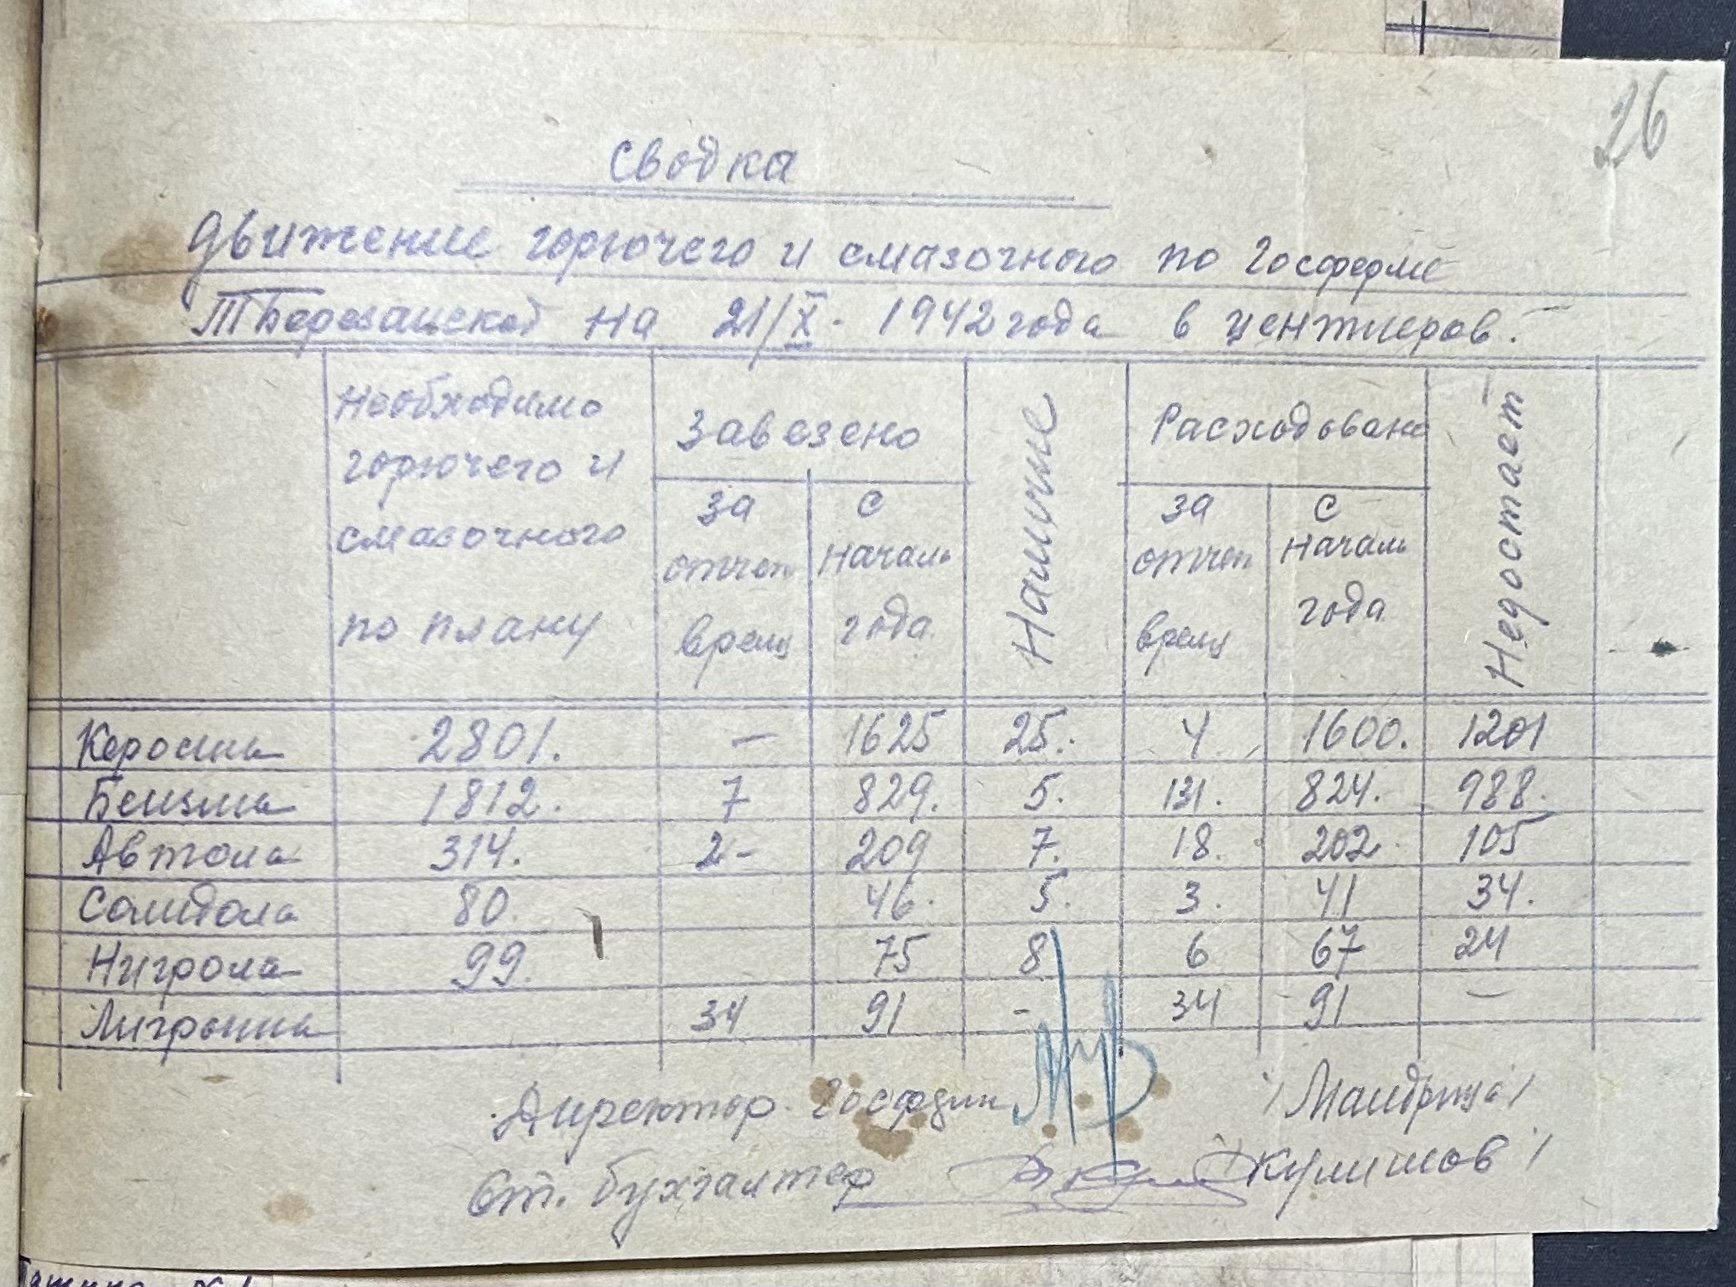 26
Сводка
движение горючего и смазочного по Госферме
Т Березанской на 21/X - 1942 года в центнеров.
Необходимо горючего и смазочного по плану
Завезено
Наличие
Расходовано
Недостает
за отчет время
с начала года
за отчет время
с начала года
Керосина 2801. — 1625 25. 4 1600. 1201
Бензина 1812. 7 829. 5. 131. 824. 988.
Автола 314. 2- 209 7. 18. 202 105
Солидола 80. 46. 5. 3. 41 34.
Нигрола 99. 75 8 6 67 24
Лигроина 34 91 - 34 91 —
Директор Госферм /Мандрица/
Ст. бухгалтер /Кулишов/